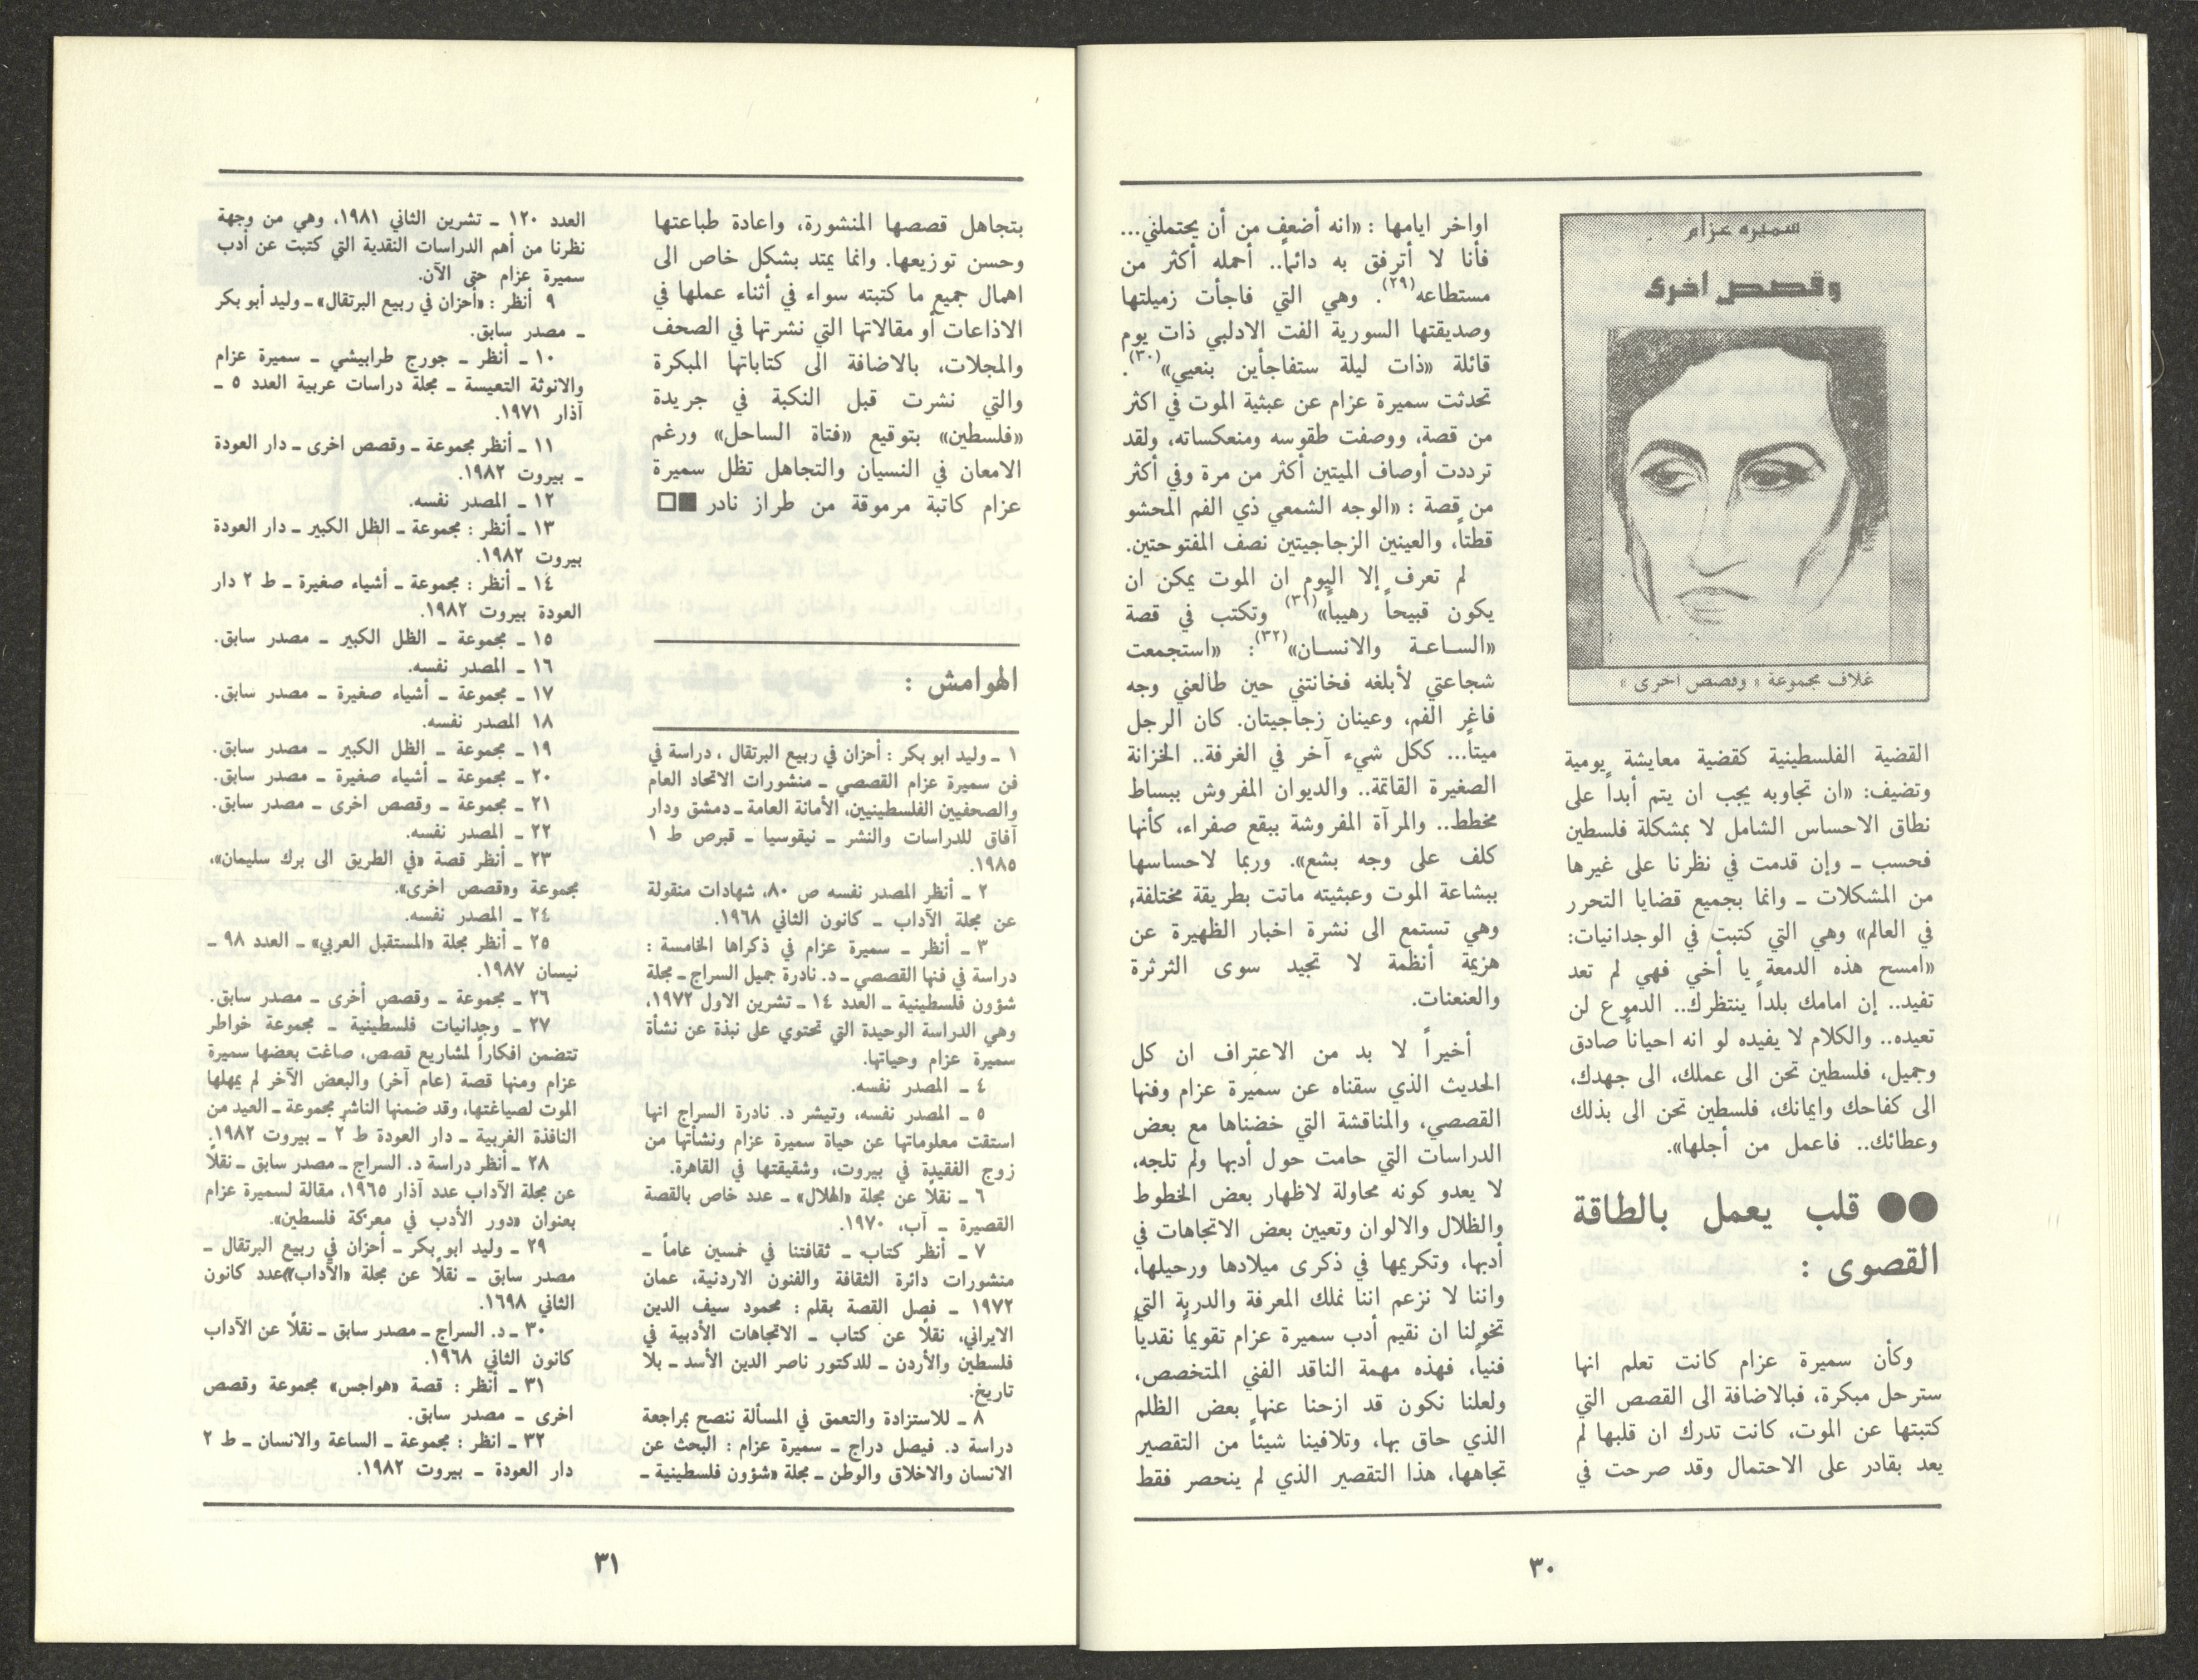 سميره عزام
وقصص اخرى
غلاف مجموعة « وقصص اخرى »
القضية الفلسطينية كقضية معايشة يومية
وتضيف: «ان تجاوبه يجب ان يتم أبداً على
نطاق الاحساس الشامل لا بمشكلة فلسطين
فحسب ـ وإن قدمت في نظرنا على غيرها
من المشكلات ـ وانما بجميع قضايا التحرر
في العالم» وهي التي كتبت في الوجدانيات:
«امسح هذه الدمعة يا أخي فهي لم تعد
تفيد.. إن امامك بلداً ينتظرك.. الدموع لن
تعيده.. والكلام لا يفيده لو انه احياناً صادق
وجميل، فلسطين تحن الى عملك، الى جهدك،
الى كفاحك وايمانك، فلسطين تحن الى بذلك
وعطائك.. فاعمل من أجلها».
●● قلب يعمل بالطاقة
القصوى :
وكأن سميرة عزام كانت تعلم انها
سترحل مبكرة، فبالاضافة الى القصص التي
كتبتها عن الموت، كانت تدرك ان قلبها لم
يعد بقادر على الاحتمال وقد صرحت في
اواخر ايامها : «انه أضعف من أن يحتملني...
فأنا لا أترفق به دائماً.. أحمله أكثر من
مستطاعه(٢٩). وهي التي فاجأت زميلتها
وصديقتها السورية الفت الادلبي ذات يوم
قائلة «ذات ليلة ستفاجأين بنعيي»(٣٠).
تحدثت سميرة عزام عن عبثية الموت في اكثر
من قصة، ووصفت طقوسه ومنعكساته، ولقد
ترددت أوصاف الميتين أكثر من مرة وفي أكثر
من قصة : «الوجه الشمعي ذي الفم المحشو
قطناً، والعينين الزجاجيتين نصف المفتوحتين.
لم تعرف إلا اليوم ان الموت يمكن ان
يكون قبيحاً رهيباً»(٣١) وتكتب في قصة
«الساعة والانسان»(٣٢): «استجمعت
شجاعتي لأبلغه فخانتني حين طالعني وجه
فاغر الفم، وعينان زجاجيتان. كان الرجل
ميتاً... ككل شيء آخر في الغرفة.. الخزانة
الصغيرة القاتمة.. والديوان المفروش ببساط
مخطط.. والمرآة المفروشة ببقع صفراء، كأنها
كلف على وجه بشع». وربما لاحساسها
ببشاعة الموت وعبثيته ماتت بطريقة مختلفة؛
وهي تستمع الى نشرة اخبار الظهيرة عن
هزيمة أنظمة لا تجيد سوى الثرثرة
والعنعنات.
أخيراً لا بد من الاعتراف ان كل
الحديث الذي سقناه عن سميرة عزام وفنها
القصصي، والمناقشة التي خضناها مع بعض
الدراسات التي حامت حول أدبها ولم تلجه،
لا يعدو كونه محاولة لاظهار بعض الخطوط
والظلال والالوان وتعيين بعض الاتجاهات في
أدبها، وتكريمها في ذكرى ميلادها ورحيلها،
واننا لا نزعم اننا نملك المعرفة والدربة التي
تخولنا ان نقيم أدب سميرة عزام تقويماً نقدياً
فنياً، فهذه مهمة الناقد الفني المتخصص،
ولعلنا نكون قد ازحنا عنها بعض الظلم
الذي حاق بها، وتلافينا شيئاً من التقصير
تجاهها، هذا التقصير الذي لم ينحصر فقط
٣٠
بتجاهل قصصها المنشورة، واعادة طباعتها
وحسن توزيعها. وانما يمتد بشكل خاص الى
اهمال جميع ما كتبته سواء في أثناء عملها في
الاذاعات أو مقالاتها التي نشرتها في الصحف
والمجلات، بالاضافة الى كتاباتها المبكرة
والتي نشرت قبل النكبة في جريدة
«فلسطين» بتوقيع «فتاة الساحل» ورغم
الامعان في النسيان والتجاهل تظل سميرة
عزام كاتبة مرموقة من طراز نادر ■□
الهوامش :
١ ـ وليد ابو بكر : أحزان في ربيع البرتقال ، دراسة في
فن سميرة عزام القصصي ـ منشورات الاتحاد العام
والصحفيين الفلسطينيين، الأمانة العامة ـ دمشق ودار
آفاق للدراسات والنشر ـ نيقوسيا ـ قبرص ط ١
١٩٨٥.
٢ ـ أنظر المصدر نفسه ص ٨٠، شهادات منقولة
عن مجلة الآداب ـ كانون الثاني ١٩٦٨.
٣ ـ أنظر ـ سميرة عزام في ذكراها الخامسة :
دراسة في فنها القصصي ـ د. نادرة جميل السراج ـ مجلة
شؤون فلسطينية ـ العدد ١٤ ـ تشرين الاول ١٩٧٢،
وهي الدراسة الوحيدة التي تحتوي على نبذة عن نشأة
سميرة عزام وحياتها.
٤ ـ المصدر نفسه.
٥ ـ المصدر نفسه، وتيشر د. نادرة السراج انها
استقت معلوماتها عن حياة سميرة عزام ونشأتها من
زوج الفقيدة في بيروت، وشقيقتها في القاهرة.
٦ ـ نقلاً عن مجلة «الهلال» ـ عدد خاص بالقصة
القصيرة ـ آب، ١٩٧٠.
٧ ـ أنظر كتاب ـ ثقافتنا في خمسين عاماً ـ
منشورات دائرة الثقافة والفنون الاردنية، عمان
١٩٧٢ ـ فصل القصة بقلم : محمود سيف الدين
الايراني، نقلاً عن كتاب ـ الاتجاهات الأدبية في
فلسطين والأردن ـ للدكتور ناصر الدين الأسد ـ بلا
تاريخ.
٨ ـ للاستزادة والتعمق في المسألة ننصح بمراجعة
دراسة د. فيصل دراج ـ سميرة عزام : البحث عن
الانسان والاخلاق والوطن ـ مجلة «شؤون فلسطينية ـ
العدد ١٢٠ ـ تشرين الثاني ١٩٨١، وهي من وجهة
نظرنا من أهم الدراسات النقدية التي كتبت عن أدب
سميرة عزام حتى الآن.
٩ أنظر : «أحزان في ربيع البرتقال» ـ وليد أبو بكر
ـ مصدر سابق.
١٠ ـ أنظر ـ جورج طرابيشي ـ سميرة عزام
والانوثة التعيسة ـ مجلة دراسات عربية العدد ٥ ـ
آذار ١٩٧١.
١١ ـ أنظر مجموعة ـ وقصص اخرى ـ دار العودة
ـ بيروت ١٩٨٢.
١٢ ـ المصدر نفسه.
١٣ ـ أنظر : مجموعة ـ الظل الكبير ـ دار العودة
بيروت ١٩٨٢.
١٤ ـ أنظر : مجموعة ـ أشياء صغيرة ـ ط ٢ دار
العودة بيروت ١٩٨٢.
١٥ ـ مجموعة ـ الظل الكبير ـ مصدر سابق.
١٦ ـ المصدر نفسه.
١٧ ـ مجموعة ـ أشياء صغيرة ـ مصدر سابق.
١٨ المصدر نفسه.
١٩ ـ مجموعة ـ الظل الكبير ـ مصدر سابق.
٢٠ ـ مجموعة ـ أشياء صغيرة ـ مصدر سابق.
٢١ ـ مجموعة ـ وقصص اخرى ـ مصدر سابق.
٢٢ ـ المصدر نفسه.
٢٣ ـ أنظر قصة «في الطريق الى برك سليمان»،
مجموعة و«قصص اخرى».
٢٤ ـ المصدر نفسه.
٢٥ ـ أنظر مجلة «المستقبل العربي» ـ العدد ٩٨ ـ
نيسان ١٩٨٧.
٢٦ ـ مجموعة ـ وقصص أخرى ـ مصدر سابق.
٢٧ ـ وجدانيات فلسطينية ـ مجموعة خواطر
تتضمن افكاراً لمشاريع قصص، صاغت بعضها سميرة
عزام ومنها قصة (عام آخر) والبعض الآخر لم يمهلها
الموت لصياغتها، وقد ضمنها الناشر مجموعة ـ العيد من
النافذة الغربية ـ دار العودة ط ٢ ـ بيروت ١٩٨٢.
٢٨ ـ أنظر دراسة د. السراج ـ مصدر سابق ـ نقلاً
عن مجلة الآداب عدد آذار ١٩٦٥، مقالة لسميرة عزام
بعنوان «دور الأدب في معركة فلسطين».
٢٩ ـ وليد ابو بكر ـ أحزان في ربيع البرتقال ـ
مصدر سابق ـ نقلاً عن مجلة «الآداب» عدد كانون
الثاني ١٦٩٨.
٣٠ ـ د. السراج ـ مصدر سابق ـ نقلاً عن الآداب
كانون الثاني ١٩٦٨.
٣١ ـ أنظر : قصة «هواجس» مجموعة وقصص
اخرى ـ مصدر سابق.
٣٢ ـ انظر : مجموعة ـ الساعة والانسان ـ ط ٢
دار العودة ـ بيروت ١٩٨٢.
٣١